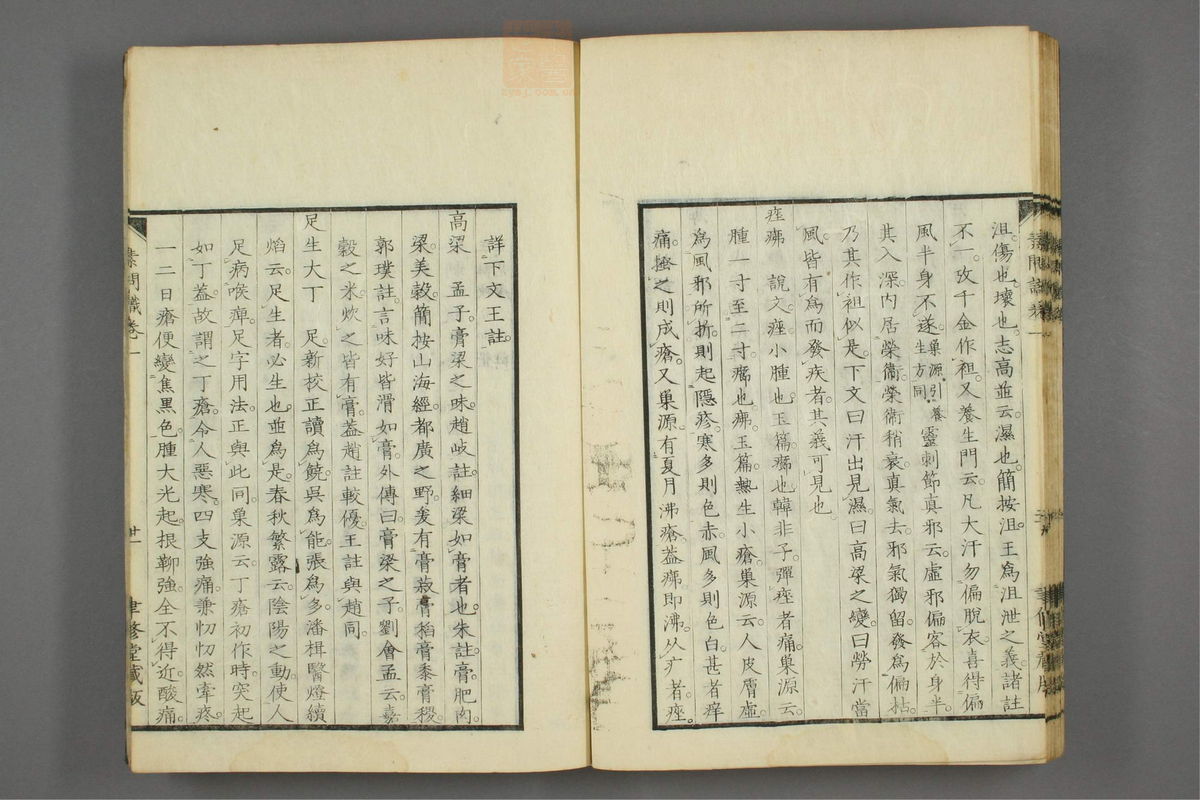 沮。傷也。壞也。志高並云。濕也。簡按沮。王爲沮泄之義。諸註
不一。攷千金作袒。又養生門云。凡大汗勿偏脫衣。喜得偏
風半身不遂。巢源引養生方同。靈刺節真邪云。虛邪偏客於身半。
其入深。內居榮衞。榮衞稍衰。真氣去。邪氣獨留。發爲偏枯。
乃其作袒似是。下文曰汗出見濕。曰高梁之變。曰勞汗當
風。皆有爲而發疾者。其義可見也
痤疿 說文。痤小腫也。玉篇。癤也。韓非子。彈痤者痛。巢源云。
腫一寸至二寸。癤也。疿。玉篇。熱生小瘡。巢源云。人皮膚虛。
爲風邪所折。則起隱疹。寒多則色赤。風多則色白。甚者痒
痛。搔之則成瘡。又巢源。有夏月沸瘡。葢疿即沸。从疒者。痤。
詳下文王註。
高梁 孟子膏梁之味。趙岐註。細梁如膏者也。朱註。膏肥肉。
梁美穀。簡按山海經。都廣之野。爰有膏菽膏稻膏黍膏稷。
郭璞註。言味好皆滑如膏。外傳曰。膏梁之子。劉會孟云。嘉
穀之米。炊之皆有膏。葢趙註較優。王註與趙同。
足生大丁 足。新校正讀爲饒。吳爲能。張爲多。潘楫醫燈續
焰云。足生者。必生也。並爲是。春秋繁露云。陰陽之動。使人
足病喉痺。足字用法。正與此同。巢源云。丁瘡初作時。突起
如丁葢。故謂之丁瘡。令人惡寒。四支強痛。兼忉忉然牽疼。
一二日瘡便變焦黑。色腫大光起。根鞕強。全不得近。酸痛。
素問識卷一
廿一
聿修堂藏版